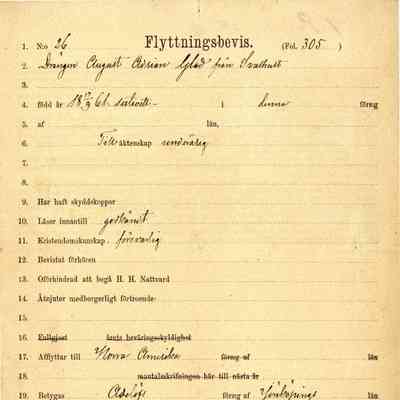 1. N:o 26 Flyttningsbevis. (Fol. 305)
2. Drängen August Adrian Glad från Svalhult
3.
4. född år 18 61 i denna förng
5. af län,
6. Till äktenskap
7.
8.
9. Har haft skyddskoppor
10. Läser innantill godkänt
11. Kristendomskunskap försvarlig
12. Bevistat förhören
13. Oförhindrad att begå H. H. Nattvard
14. Åtnjuter medborgerligt förtroende
15.
16. Fullgjort årets beväringsskyldighet
17. Afflyttar till Norra Amerika förng af län
18. mantalsskrifningen här till nästa år
19. Betygas Adelöfs förng af Jönköpings